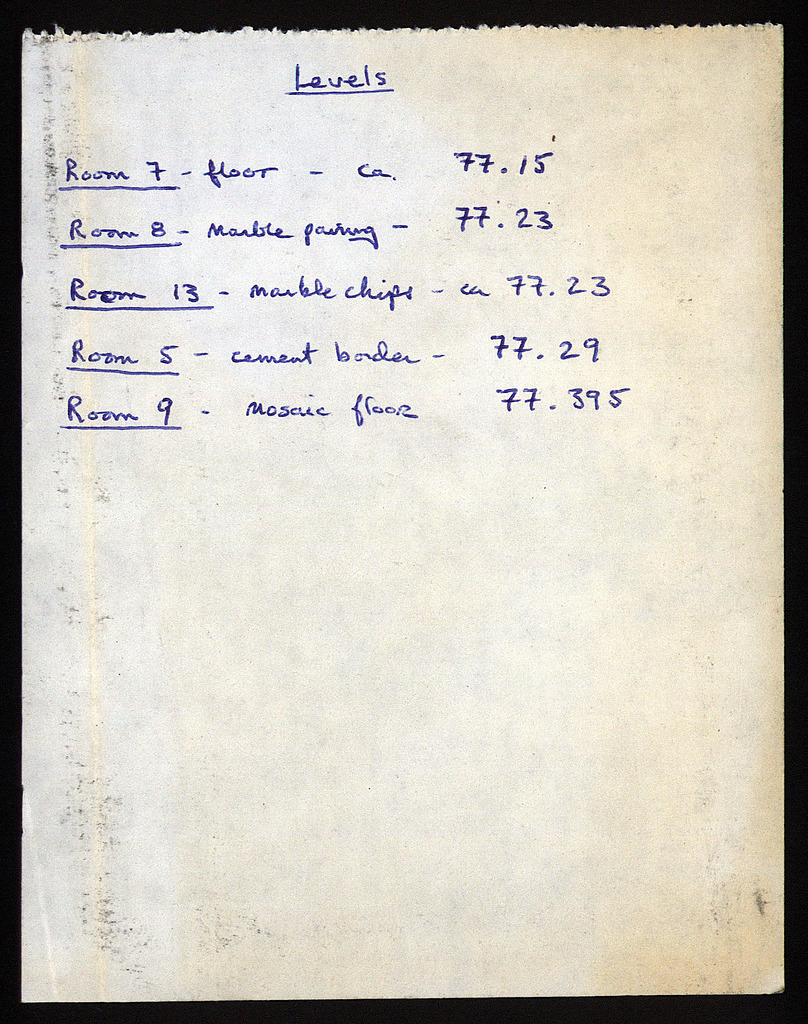 Levels
Room 7 - floor - ca. 77.15
Room 8 - Marble paving - 77.23
Room 13 - marble chips - ca 77.23
Room 5 - cement border - 77.29
Room 9 - Mosaic floor 77.395